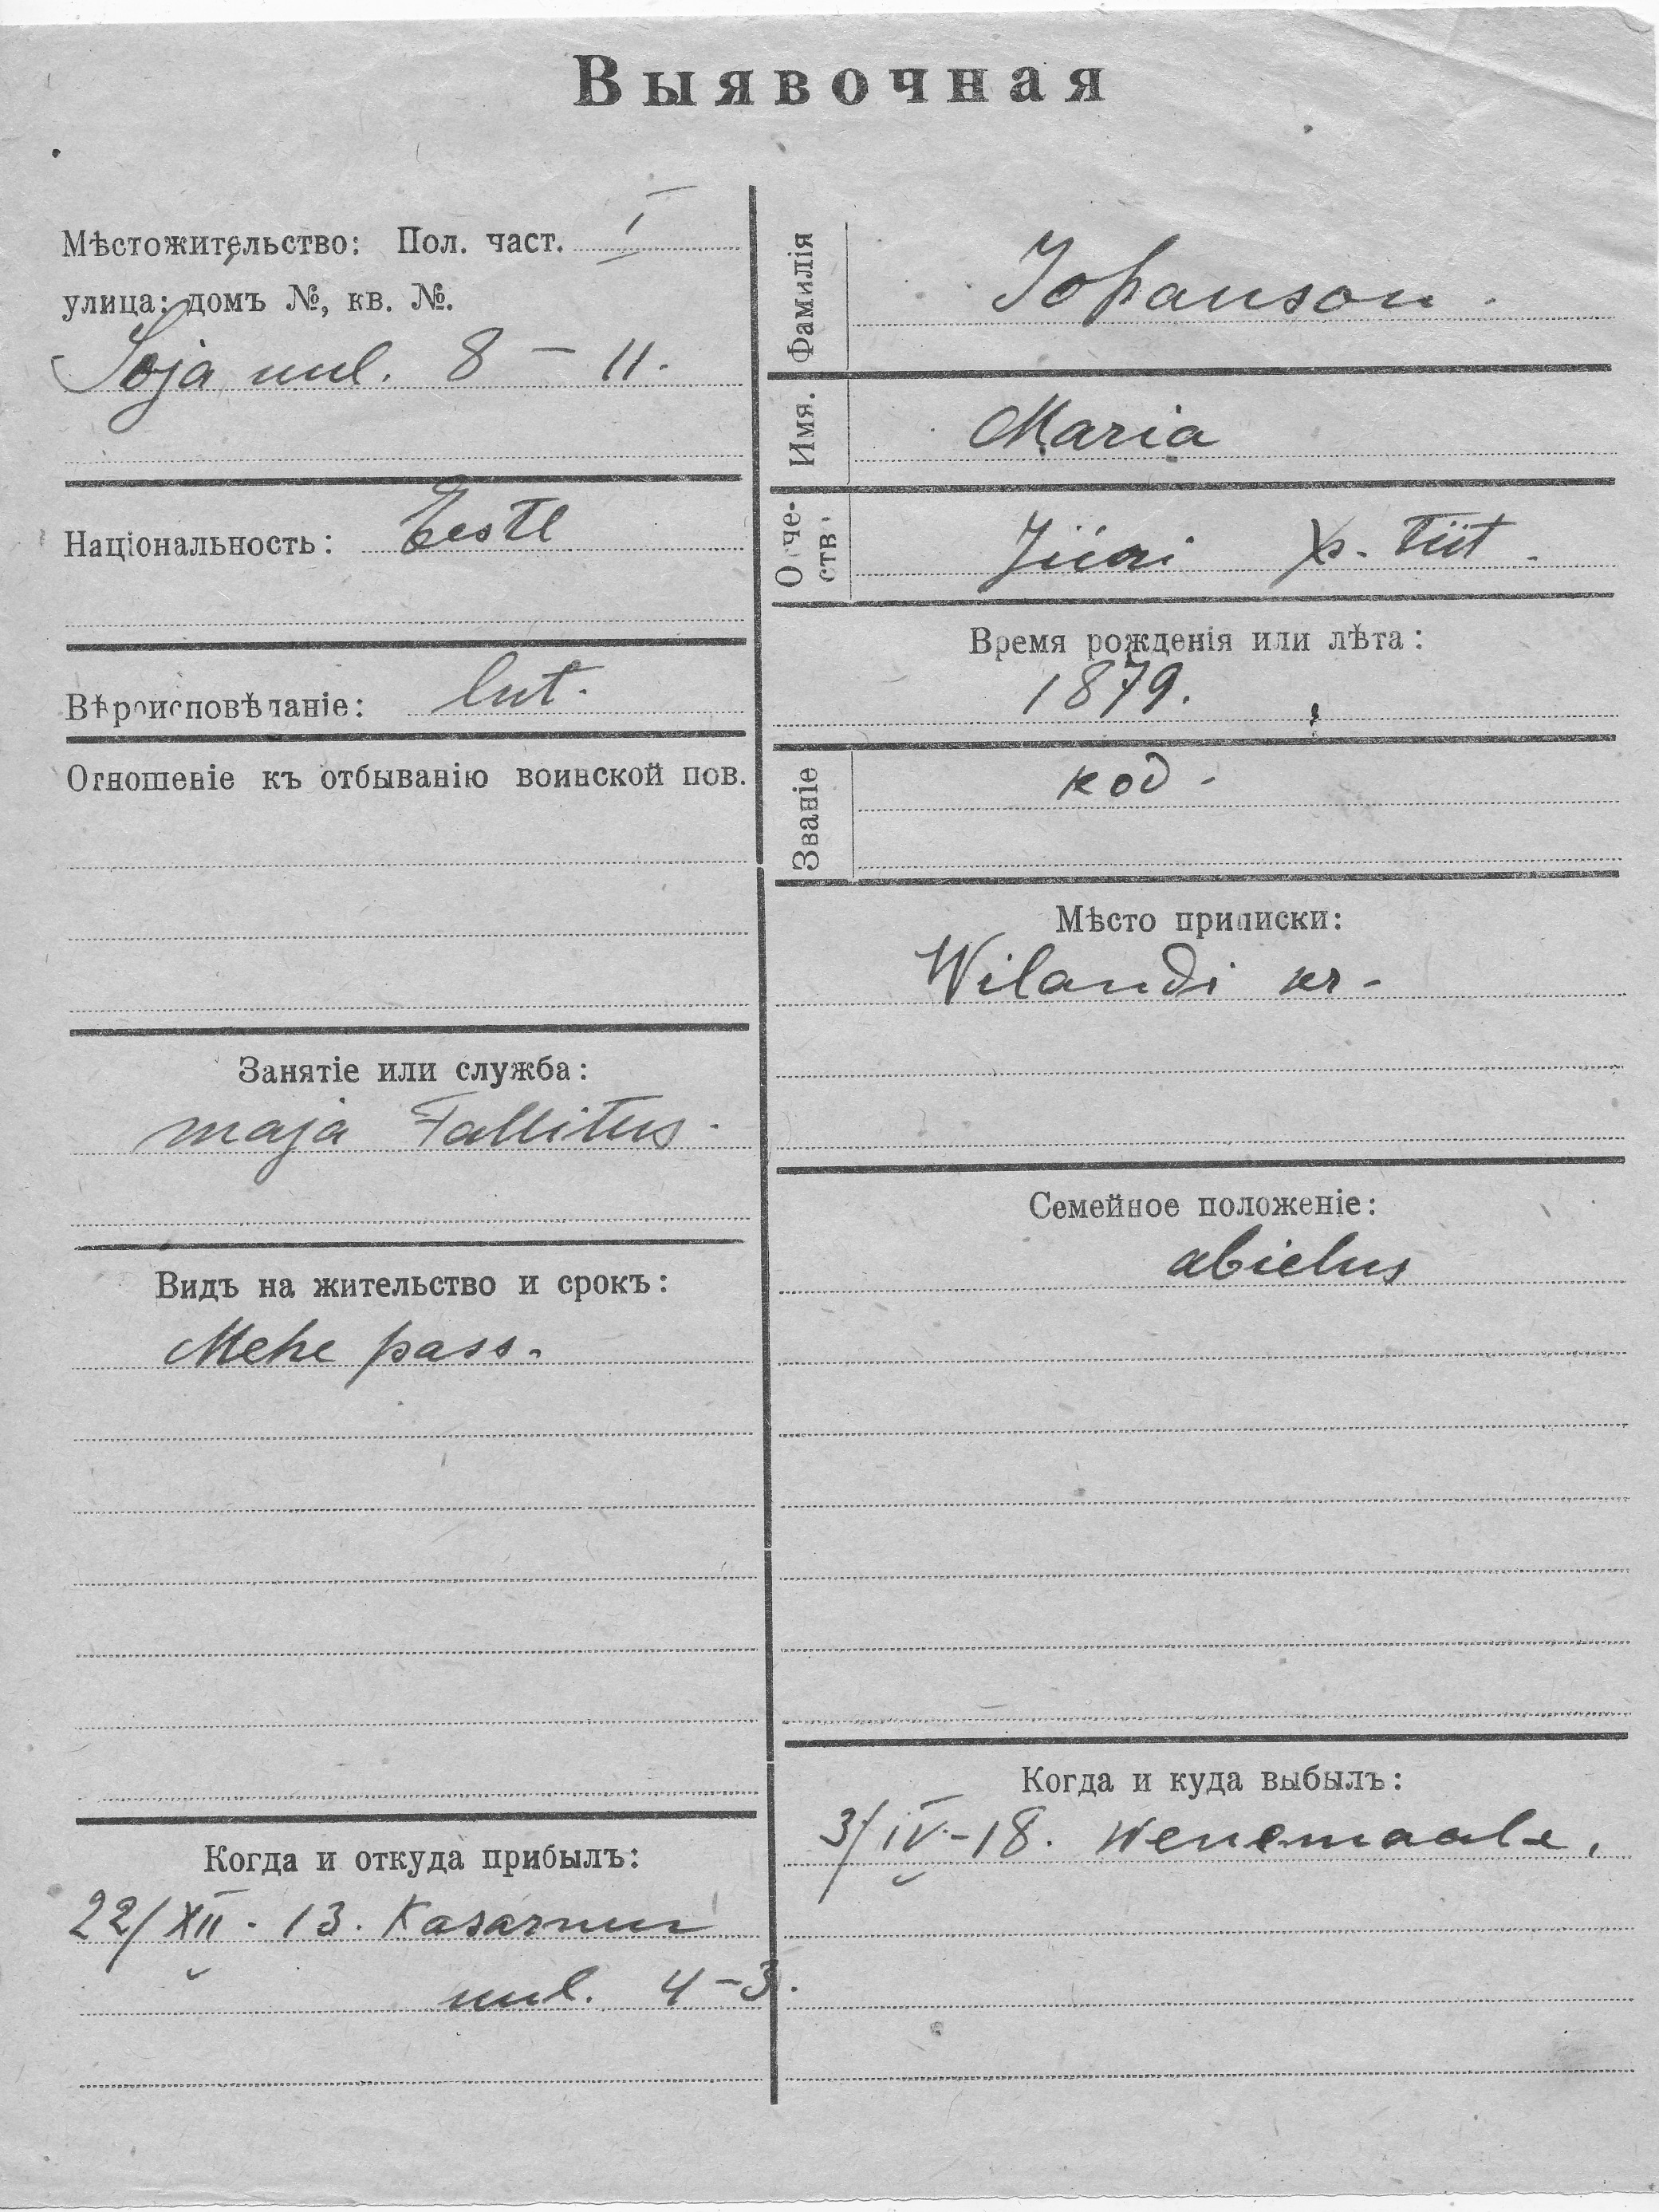 Выявочная
Мѣстожительство: Пол. част. I
улица: домъ №, кв. №.
Soja uul. 8 – 11.
Національность: Eestl
Вѣроисповѣданіе: lut.
Отношеніе къ отбыванію воинской пов.
Занятіе или служба:
maja Tallitus.
Видъ на жительство и срокъ:
Mehe pass.
Когда и откуда прибылъ:
22/XII. 13. Kasarmu
uul. 4–3.
Фамилія Johanson.
Имя. Maria
Отче-
ств. Jüri t. Tiit.
Время рожденія или лѣта:
1879.
Званіе kod.
Мѣсто приписки:
Wilandi kr.
Семейное положеніе:
abielus
Когда и куда выбылъ:
3/IV.–18. Wenemaale.